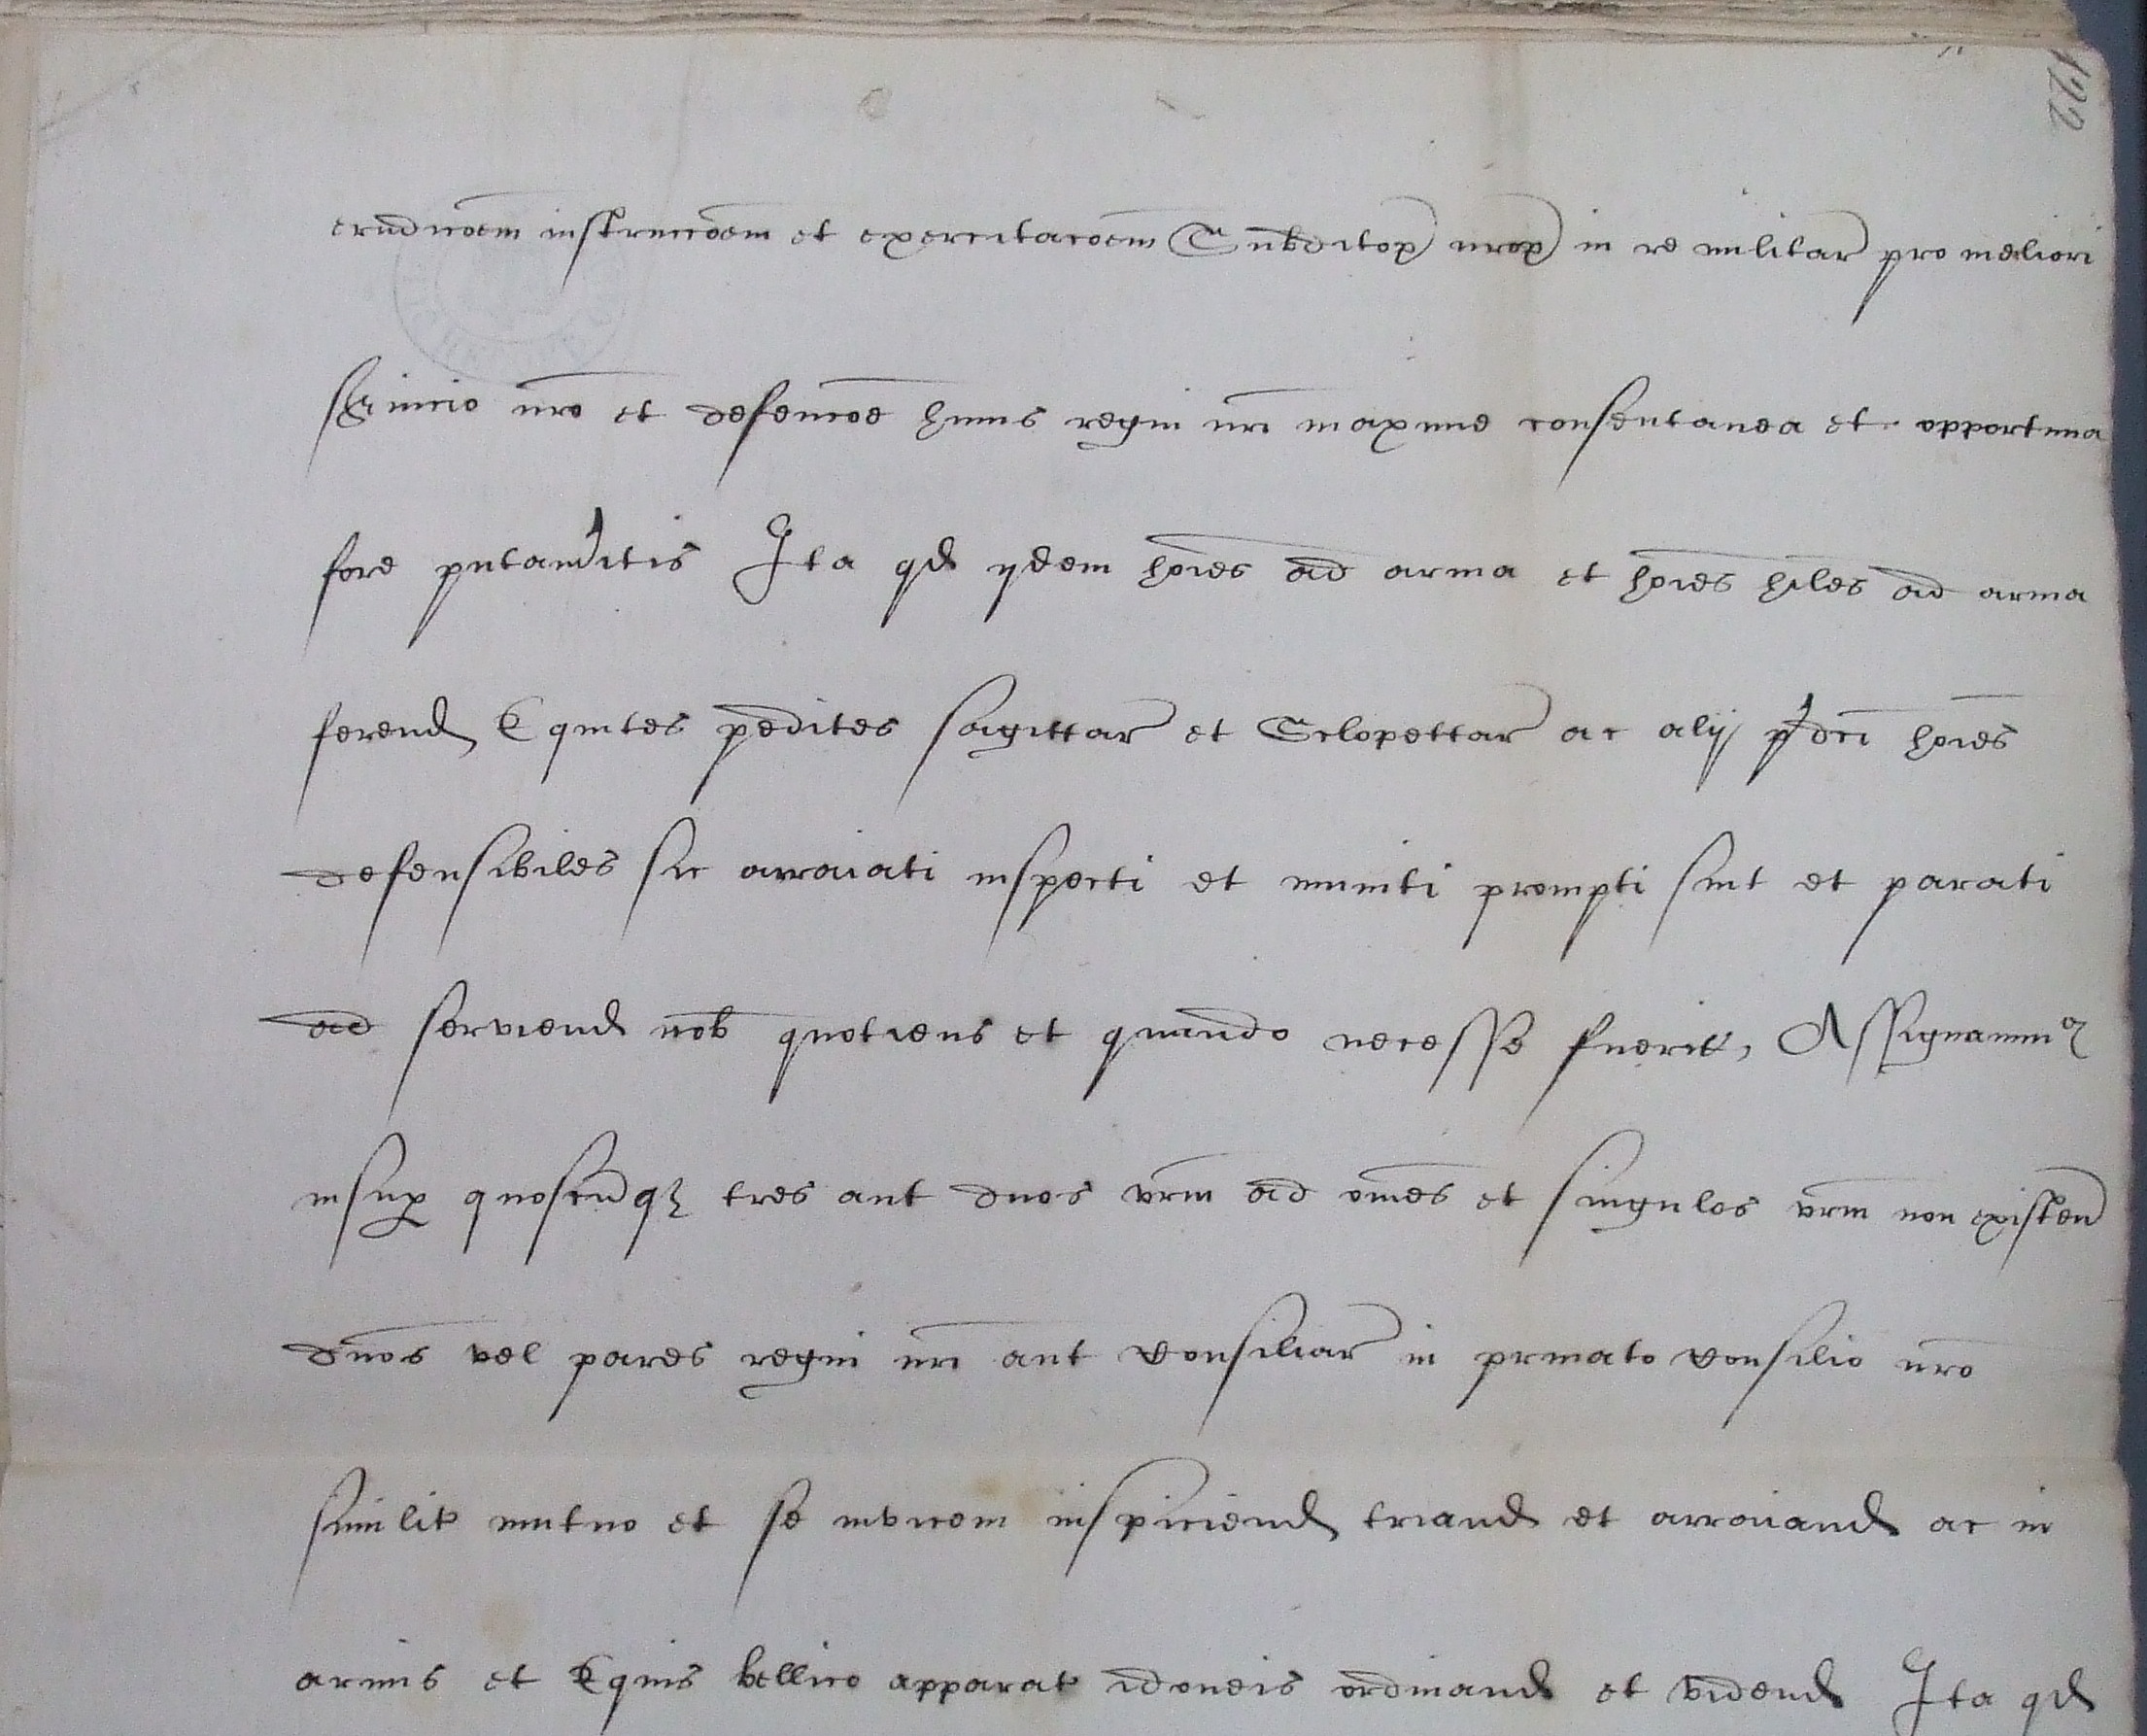 122
erudicoem instruccoem et exercitacoem Subditor nror in re militar pro meliori
servicio nro et defencoe huius regni nri maxime consentanea et opportuna
fore putaveritis Ita qd ijdem hoies ad arma et hoies hiles ad arma
ferend Equites pedites sagittar et Sclopettar ac alij pdci hoies
defensibiles sic arraiati inspecti et muniti prompti sint et parati
ad serviend nob quotiens et quando necesse fuerit, Assignamus
insup quoscumq tres aut duos vrm ad omes et singulos vrm non existen
dnos vel pares regni nri aut Consiliar in privato Consilio nro
similit mutuo et se invicem inspiciend triand et arraiand ac in
armis et Equis bellico apparat idoneis ordinand et vidend Ita qd